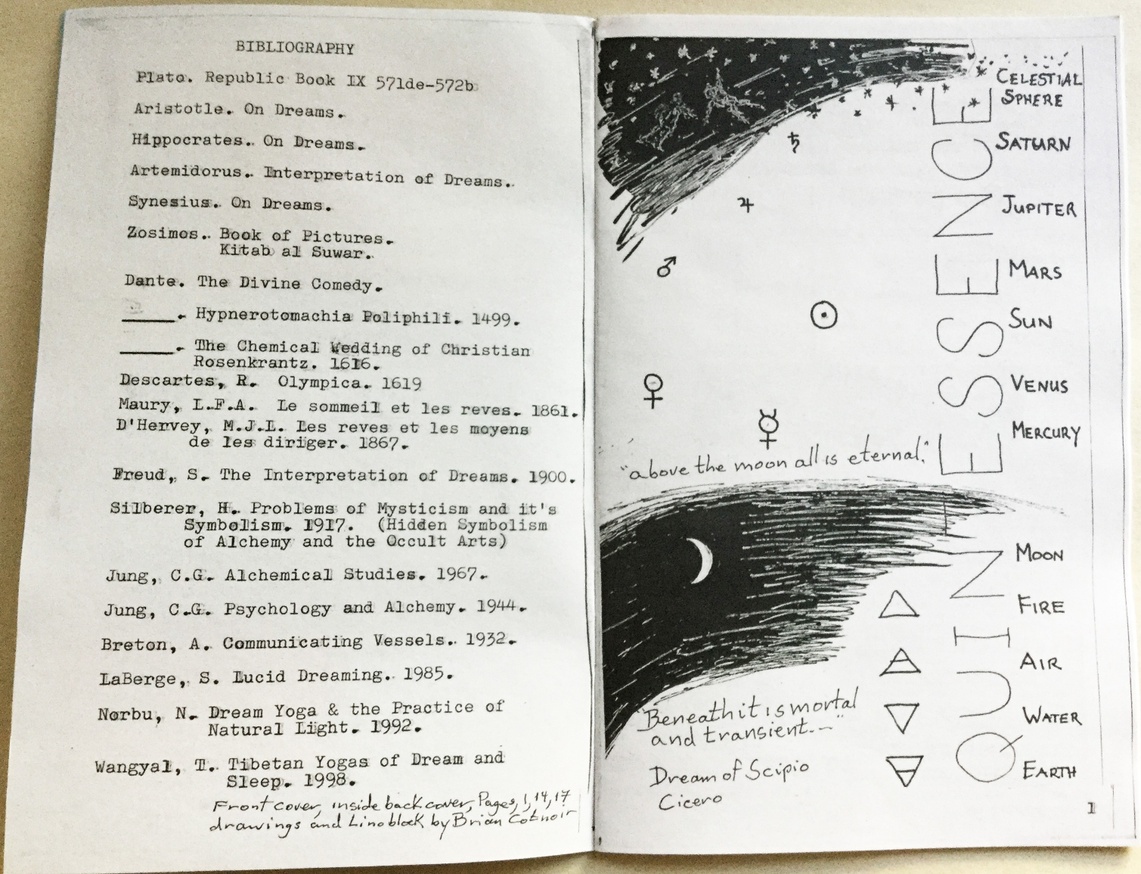 BIBLIOGRAPHY
Plato. Republic Book IX 571de-572b
Aristotle. On Dreams.
Hippocrates. On Dreams.
Artemidorus. Interpretation of Dreams.
Synesius. On Dreams.
Zosimos. Book of Pictures.
Kitab al Suwar.
Dante. The Divine Comedy.
_____. Hypnerotomachia Poliphili. 1499.
_____. The Chemical Wedding of Christian
Rosenkrantz. 1616.
Descartes, R. Olympica. 1619
Maury, L.F.A. Le sommeil et les reves. 1861.
D'Hervey, M.J.L. Les reves et les moyens
de les diriger. 1867.
Freud, S. The Interpretation of Dreams. 1900.
Silberer, H. Problems of Mysticism and it's
Symbolism. 1917. (Hidden Symbolism
of Alchemy and the Occult Arts)
Jung, C.G. Alchemical Studies. 1967.
Jung, C.G. Psychology and Alchemy. 1944.
Breton, A. Communicating Vessels. 1932.
LaBerge, S. Lucid Dreaming. 1985.
Norbu, N. Dream Yoga & the Practice of
Natural Light. 1992.
Wangyal, T. Tibetan Yogas of Dream and
Sleep. 1998.
Front cover, inside back cover, Pages, 1, 14, 17
drawings and Lino block by Brian Cotnoir
CELESTIAL
SPHERE
SATURN
♄
JUPITER
♃
MARS
♂
SUN
☉
VENUS
♀
MERCURY
☿
"above the moon all is eternal."
MOON
FIRE
🜂
AIR
🜁
WATER
🜄
EARTH
🜃
QUINESSENCE
"Beneath it is mortal
and transient..."
Dream of Scipio
Cicero
1